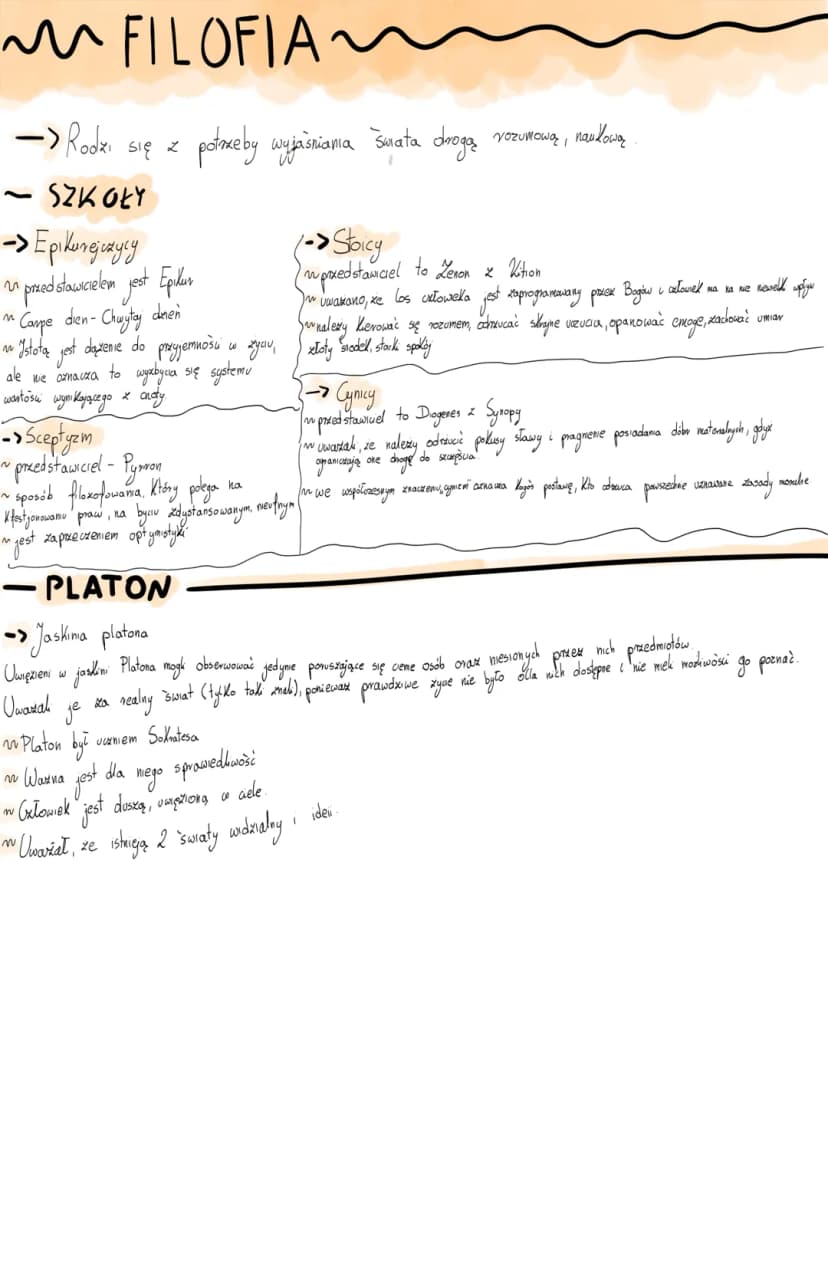 FILOFIA
-> Rodzi się z potrzeby wyjaśniania świata drogą rozumową, naukową.
- SZKOŁY
-> Epikurejczycy
przedstawicielem jest Epikur
Carpe dien - Chwytaj dzień
Istotą jest dążenie do przyjemności w życiu,
ale nie oznacza to wyzbycia się systemu
wartości wynikającego z cnoty
-> Sceptyzm
przedstawiciel - Pyrron
sposób filozofowania, który polega na
kwestjonowaniu praw, na byciu zdystansowanym, nieufnym
jest zaprzeczeniem optymistyki
-> Stoicy
przedstawiciel to Zenon z Kition
uważano, że los człowieka jest zaprogramowany przez Bogów i człowiek ma na nie niewielki wpływ
należy kierować się rozumem, odrzucać skrajne uczucia, opanować emocje, zachować umiar
złoty środek, stoicki spokój
-> Cynicy
przedstawiciel to Diogenes z Synopy
uważali, że należy odrzucić pokusy sławy i pragnienie posiadania dóbr materialnych, gdyż
ograniczają one drogę do szczęścia.
we współczesnym znaczeniu, cynizm oznacza kogoś postawę, kto odrzuca powszechnie uznawane zasady moralne
- PLATON
-> Jaskinia platona
Uwięzieni w jaskini Platona mogli obserwować jedynie poruszające się cienie osób oraz niesionych przez nich przedmiotów.
Uważali je za realny świat (tylko taki znali), ponieważ prawdziwe życie nie było dla nich dostępne i nie mieli możliwości go poznać.
Platon był uczniem Sokratesa
Ważna jest dla niego sprawiedliwość
Człowiek jest duszą, uwięzioną w ciele.
Uważał, że istnieją 2 światy widzialny i idei.